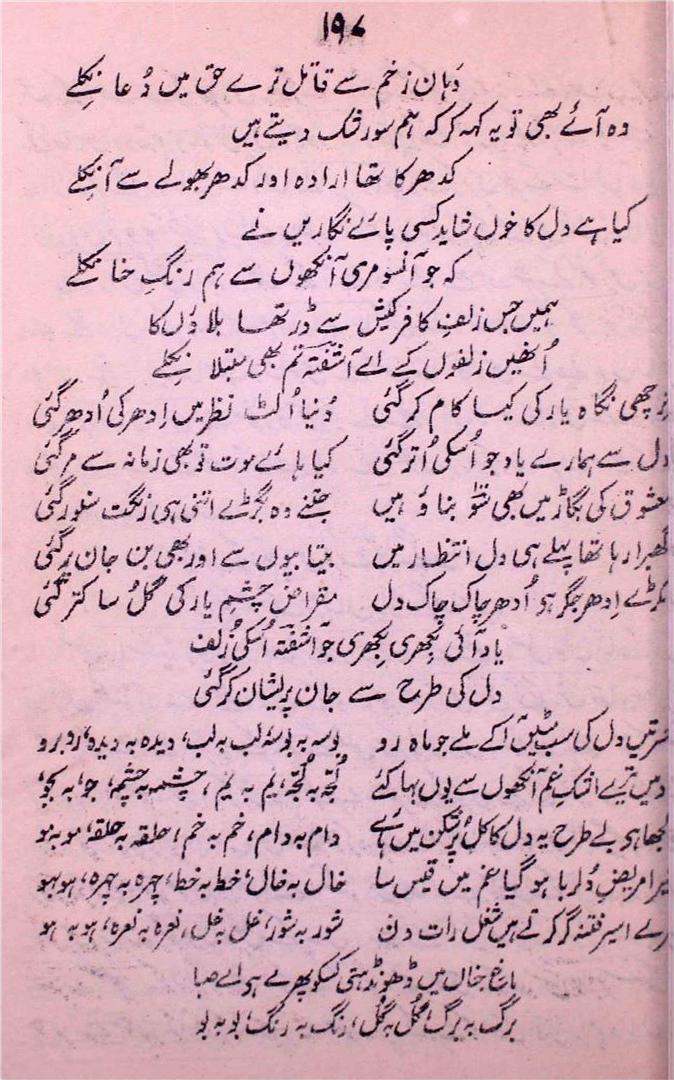 ۱۹۷
دَہان زخم سے قاتل ترے حق میں دُعا نکلے
وہ آئے بھی تو یہ کہہ کر کہ ہم سو رشک دیتے ہیں
کدھر کا تھا ارادہ اور کدھر بھولے سے آ نکلے
کیا ہے دل کا خوں شاید کسی پائے نگاریں نے
کہ جو آنسو مری آنکھوں سے ہم رنگِ حنا نکلے
ہمیں جس زلفِ کافر کیش سے ڈر تھا بلاؤں کا
اُنھیں زلفوں کے اے آشفتہ تم بھی مبتلا نکلے
ترچھی نگاہ یار کی کیسا کام کر گئی دُنیا اُلٹ نظر میں اِدھر کی اُدھر گئی
دل سے ہمارے یاد جو اُسکی اُتر گئی کیا ہائے موت تو بھی زمانہ سے مر گئی
معشوق کی بگاڑ میں بھی سَو بناؤ ہیں جتنے وہ بگڑے اتنی ہی رنگت سنور گئی
گھبرا رہا تھا پہلے ہی دل انتظار میں بیتابیوں سے اور بھی بن جان پر گئی
ٹکڑے اِدھر جگر ہو اُدھر چاک چاک دل مقراض چشمِ یار کی گُل سا کتر گئی
یاد آئی بکھری بکھری جو آشفتہ اُسکی زُلف
دل کی طرح سے جان پریشان کر گئی
حسرتیں دل کی سب مٹیں آکے ملے جو ماہ رو بوسہ بہ بوسہ لب بہ لب، دیدہ بہ دیدہ، روبرو
میں تیرے اشکِ غم آنکھوں سے یوں بہا کئے لُجّہ بہ لُجّہ، یم بہ یم، چشمہ بہ چشمہ، جو بہ جو
اُلجھا ہی بے طرح یہ دل کاکل پُرشکن میں ہائے دام بہ دام، خم بہ خم، حلقہ بہ حلقہ، مو بہ مو
تیرا مریضِ دلربا ہو گیا غم میں قیس سا خال بہ خال، خط بہ خط، چہرہ بہ چہرہ، ہو بہو
تیرے اسیر کرتے ہیں شغل رات دن شور بہ شور، غل بہ غل، نعرہ بہ نعرہ، ہو بہ ہو
باغِ جناں میں ڈھونڈہتی کسکو پھرے ہی اے صبا
برگ بہ برگ، گُل بہ گُل، رنگ بہ رنگ، بو بہ بو